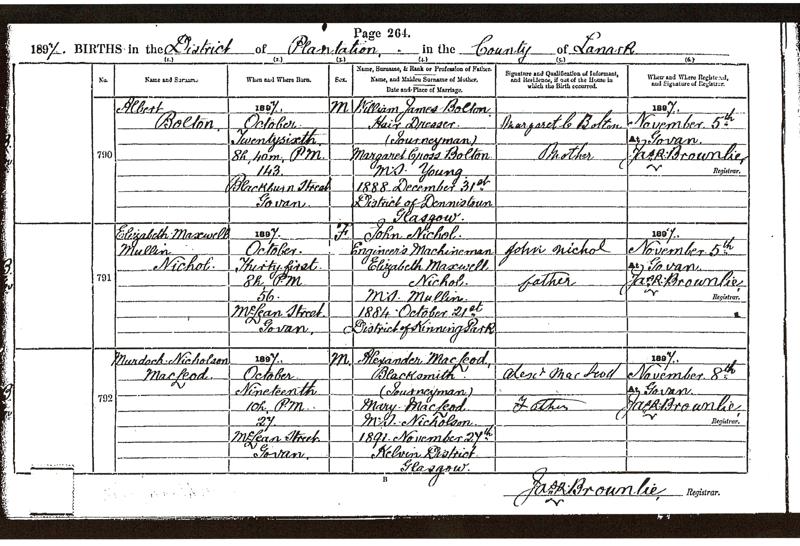 Page 264.
1897. BIRTHS in the District of Plantation, in the County of Lanark
(1.) (2.) (3.) (4.) (5.) (6.)
No. Name and Surname. When and Where Born. Sex. Name, Surname, & Rank or Profession of Father. Name, and Maiden Surname of Mother. Date and Place of Marriage. Signature and Qualification of Informant, and Residence, if out of the House in which the Birth occurred. When and Where Registered, and Signature of Registrar.
790
Albert
Bolton.
1897.
October
Twentysixth
8h. 40m. P.M.
143.
Blackburn Street
Govan.
M
William James Bolton.
Hair Dresser.
(Journeyman)
Margaret Bolton
M.S. Young
1888. December 31st
District of Dennistoun
Glasgow.
Margaret C Bolton
Mother
1897.
November 5th
At Govan.
Jas R Brownlie,
Registrar.
791
Elizabeth Maxwell
Mullin
Nichol.
1897.
October.
Thirty first.
8h. P.M.
56.
McLean Street.
Govan.
F
John Nichol.
Engineer's Machineman
Elizabeth Maxwell
Nichol.
M.S. Mullin.
1884. October 21st
District of Kinning Park
John Nichol
father
1897.
November 5th
At Govan.
Jas R Brownlie,
Registrar.
792
Murdoch Nicholson
MacLeod.
1897.
October.
Nineteenth
10h. P.M.
27.
McLean Street
Govan.
M.
Alexander MacLeod,
Blacksmith.
(Journeyman)
Mary MacLeod.
M.S. Nicholson.
1891. November 27th
Kelvin District
Glasgow.
Alexr MacLeod
Father
1897.
November 8th
At Govan.
Jas R Brownlie,
Registrar.
B
Jas R Brownlie, Registrar.